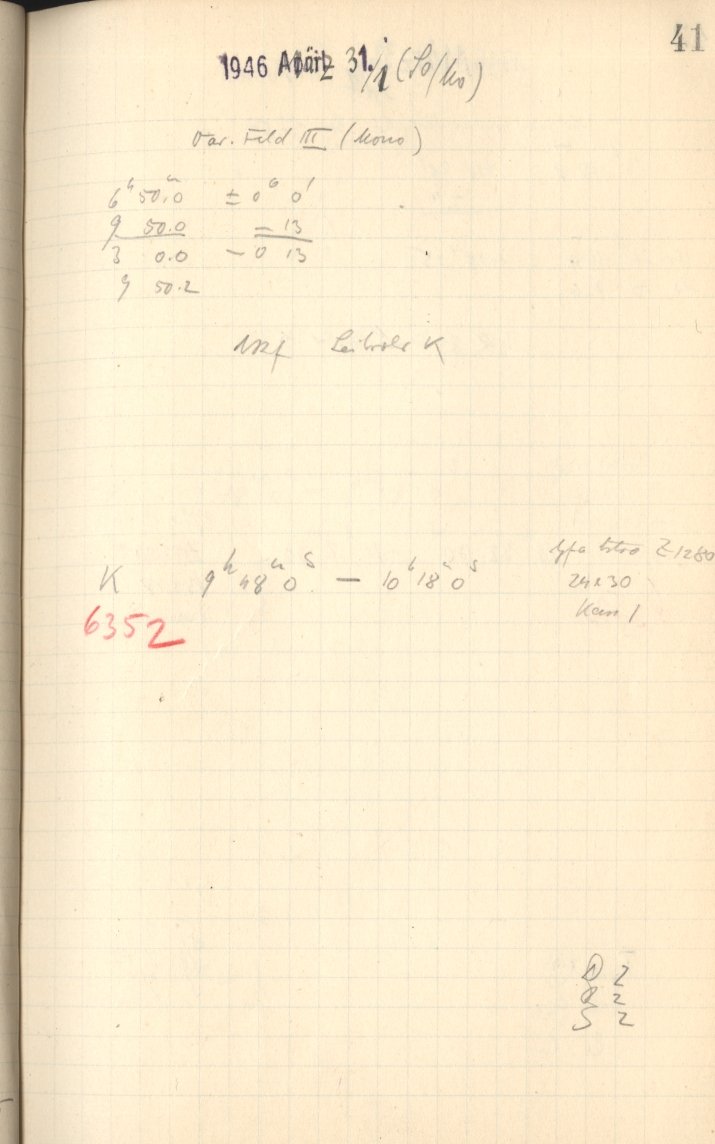 41
1946 März 31./1 (So/Mo)
Var. Feld III (Mono)
6ʰ 50.0ᵐ ± 0° 0'
9 50.0 = 13
3 0.0 − 0 13
9 50.2
Leitrohr K
K 9ʰ 48ᵐ 0ˢ — 10ʰ 18ᵐ 0ˢ
Agfa Astro Z 1280
24x30
Kass 1
6352
D 2
R 2
S 2